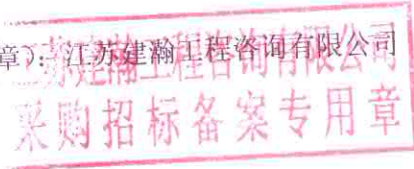 章）：江苏建瀚工程咨询有限公司
江苏建瀚工程咨询有限公司
采购招标备案专用章